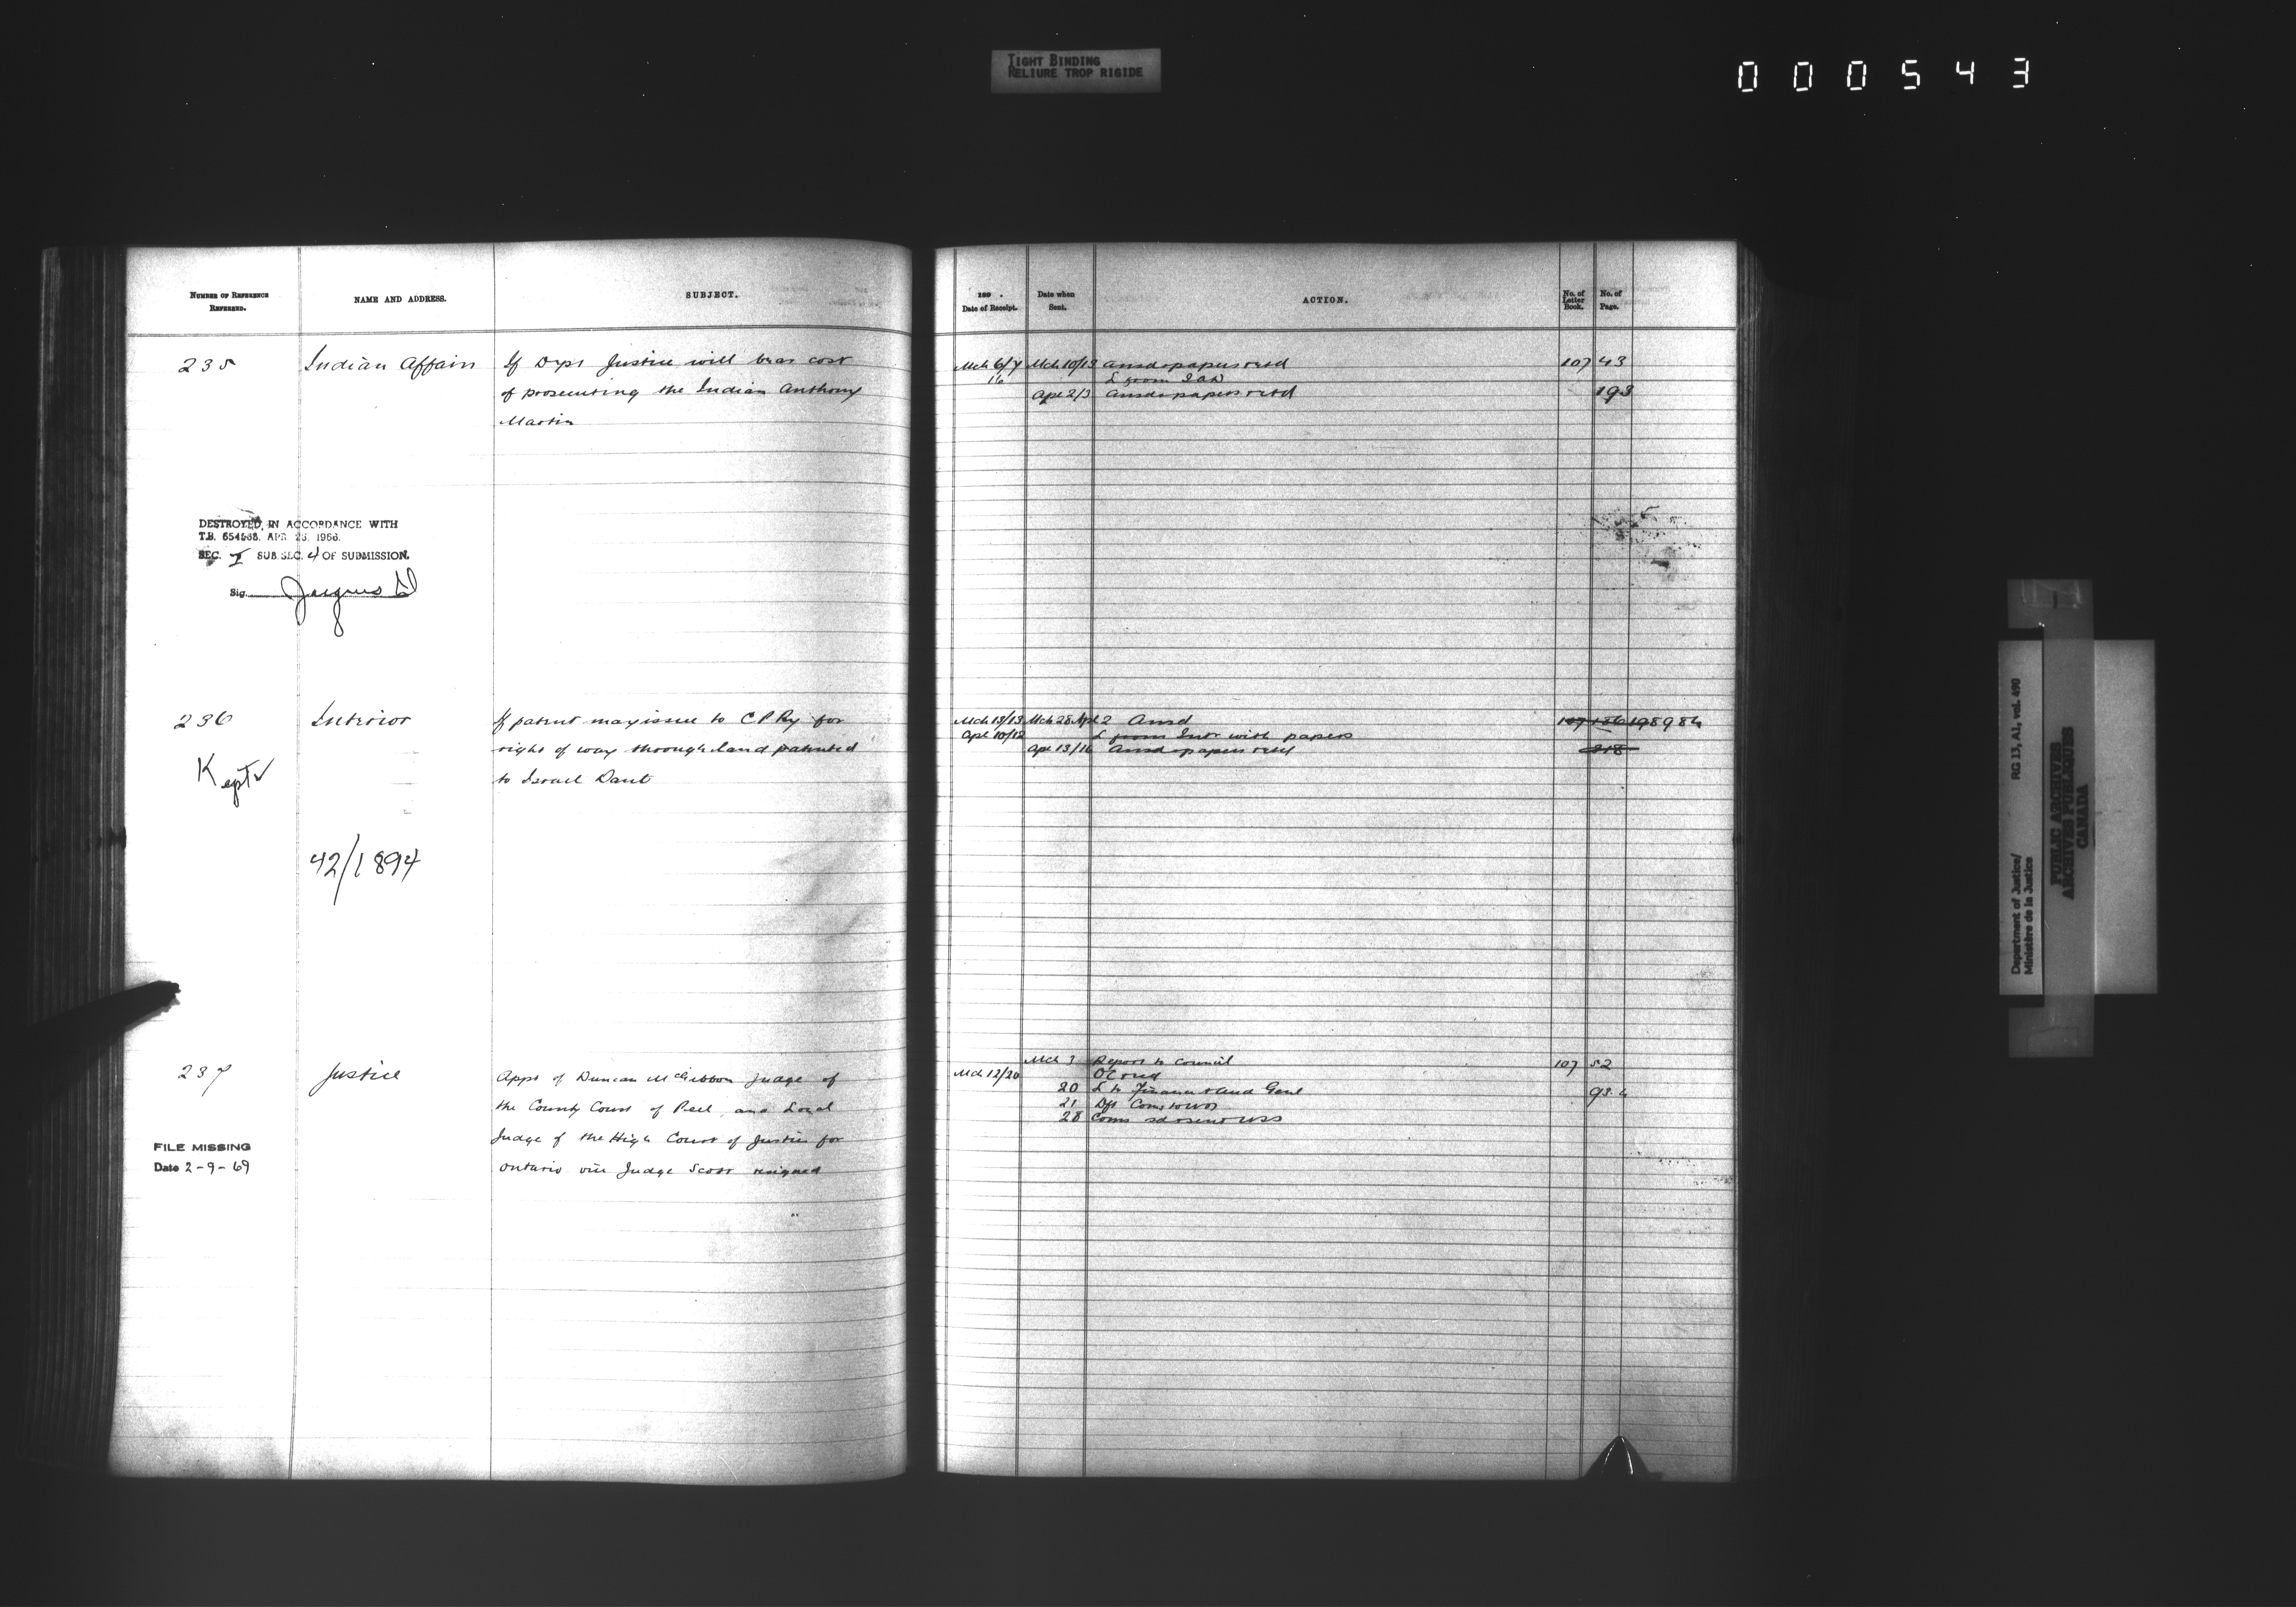 TIGHT BINDING
RELIURE TROP RIGIDE
000543
NUMBER OF REFERENCE
REFERRED.
NAME AND ADDRESS.
SUBJECT.
189 .
Date of Receipt.
Date when
Sent.
ACTION.
No. of
Letter
Book.
No. of
Page.
235 Indian Affairs If Dept Justice will bear cost
of prosecuting the Indian Anthony
Martin
Mch 6/7 Mch 10/13 Ansd & papers retd 107 43
16 L from I aff
Apl 2/3 Ansd & papers retd 193
DESTROYED IN ACCORDANCE WITH
T.B. 654568. APR 26. 1966.
SEC. I SUB SEC. 4 OF SUBMISSION.
Sig.
236 Interior If patent may issue to C P Ry for
right of way through land patented
to Israel Dant
Kept
42/1894
Mch 13/13 Mch 28 Apl 2 Ansd 107 186 198 984
Apl 10/12 L from Intr with papers
Apl 13/16 Ansd & papers retd 218
237 Justice Appt of Duncan McGibbon Judge of
the County Court of Peel, and Local
Judge of the High Court of Justice for
Ontario vice Judge Scott resigned
FILE MISSING
Date 2-9-69
Mch 7 Report to Council 107 52
Mch 12/20 OC recd
20 L to Finance & Aud Genl 93.4
21 Dft Coms to
28 Coms
Department of Justice/
Ministère de la Justice
RG 13, A1, vol. 490
PUBLIC ARCHIVES
ARCHIVES PUBLIQUES
CANADA